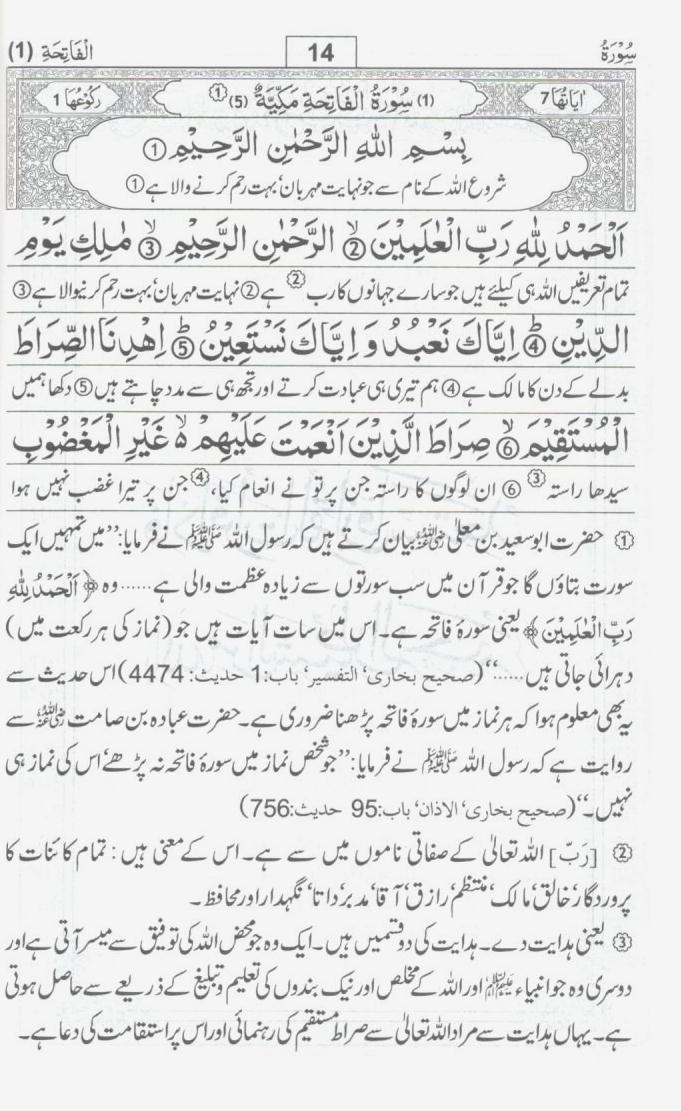 سُوْرَةُ 14 الْفَاتِحَةِ (1)
اٰيَاتُهَا 7 (1) سُوْرَةُ الْفَاتِحَةِ مَكِّيَّةٌ (5) ① رُكُوْعُهَا 1
بِسْمِ اللّٰهِ الرَّحْمٰنِ الرَّحِيْمِ ①
شروع اللہ کے نام سے جو نہایت مہربان، بہت رحم کرنے والا ہے ①
اَلْحَمْدُ لِلّٰهِ رَبِّ الْعٰلَمِيْنَ ② الرَّحْمٰنِ الرَّحِيْمِ ③ مٰلِكِ يَوْمِ
تمام تعریفیں اللہ ہی کیلئے ہیں جو سارے جہانوں کا رب ② ہے ② نہایت مہربان، بہت رحم کرنیوالا ہے ③
الدِّيْنِ ④ اِيَّاكَ نَعْبُدُ وَ اِيَّاكَ نَسْتَعِيْنُ ⑤ اِهْدِنَا الصِّرَاطَ
بدلے کے دن کا مالک ہے ④ ہم تیری ہی عبادت کرتے اور تجھ ہی سے مدد چاہتے ہیں ⑤ دکھا ہمیں
الْمُسْتَقِيْمَ ⑥ صِرَاطَ الَّذِيْنَ اَنْعَمْتَ عَلَيْهِمْ ۙ۬ غَيْرِ الْمَغْضُوْبِ
سیدھا راستہ ③ ⑥ ان لوگوں کا راستہ جن پر تو نے انعام کیا، ④ جن پر تیرا غضب نہیں ہوا
① حضرت ابوسعید بن معلی رضی اللہ عنہ بیان کرتے ہیں کہ رسول اللہ ﷺ نے فرمایا: ”میں تمہیں ایک
سورت بتاؤں گا جو قرآن میں سب سورتوں سے زیادہ عظمت والی ہے...... وہ ﴿اَلْحَمْدُ لِلّٰهِ
رَبِّ الْعٰلَمِيْنَ﴾ یعنی سورۂ فاتحہ ہے۔ اس میں سات آیات ہیں جو (نماز کی ہر رکعت میں)
دہرائی جاتی ہیں......“ (صحیح بخاری، التفسیر، باب:1 حدیث: 4474) اس حدیث سے
یہ بھی معلوم ہوا کہ ہر نماز میں سورۂ فاتحہ پڑھنا ضروری ہے۔ حضرت عبادہ بن صامت رضی اللہ عنہ سے
روایت ہے کہ رسول اللہ ﷺ نے فرمایا: ”جو شخص نماز میں سورۂ فاتحہ نہ پڑھے، اس کی نماز ہی
نہیں۔“ (صحیح بخاری، الاذان، باب:95 حدیث:756)
② [رَبّ] اللہ تعالیٰ کے صفاتی ناموں میں سے ہے۔ اس کے معنی ہیں: تمام کائنات کا
پروردگار، خالق، مالک، منتظم، رازق، آقا، مدبر، داتا، نگہدار اور محافظ۔
③ یعنی ہدایت دے۔ ہدایت کی دو قسمیں ہیں۔ ایک وہ جو محض اللہ کی توفیق سے میسر آتی ہے اور
دوسری وہ جو انبیاء علیہم السلام اور اللہ کے مخلص اور نیک بندوں کی تعلیم و تبلیغ کے ذریعے سے حاصل ہوتی
ہے۔ یہاں ہدایت سے مراد اللہ تعالیٰ سے صراط مستقیم کی رہنمائی اور اس پر استقامت کی دعا ہے۔